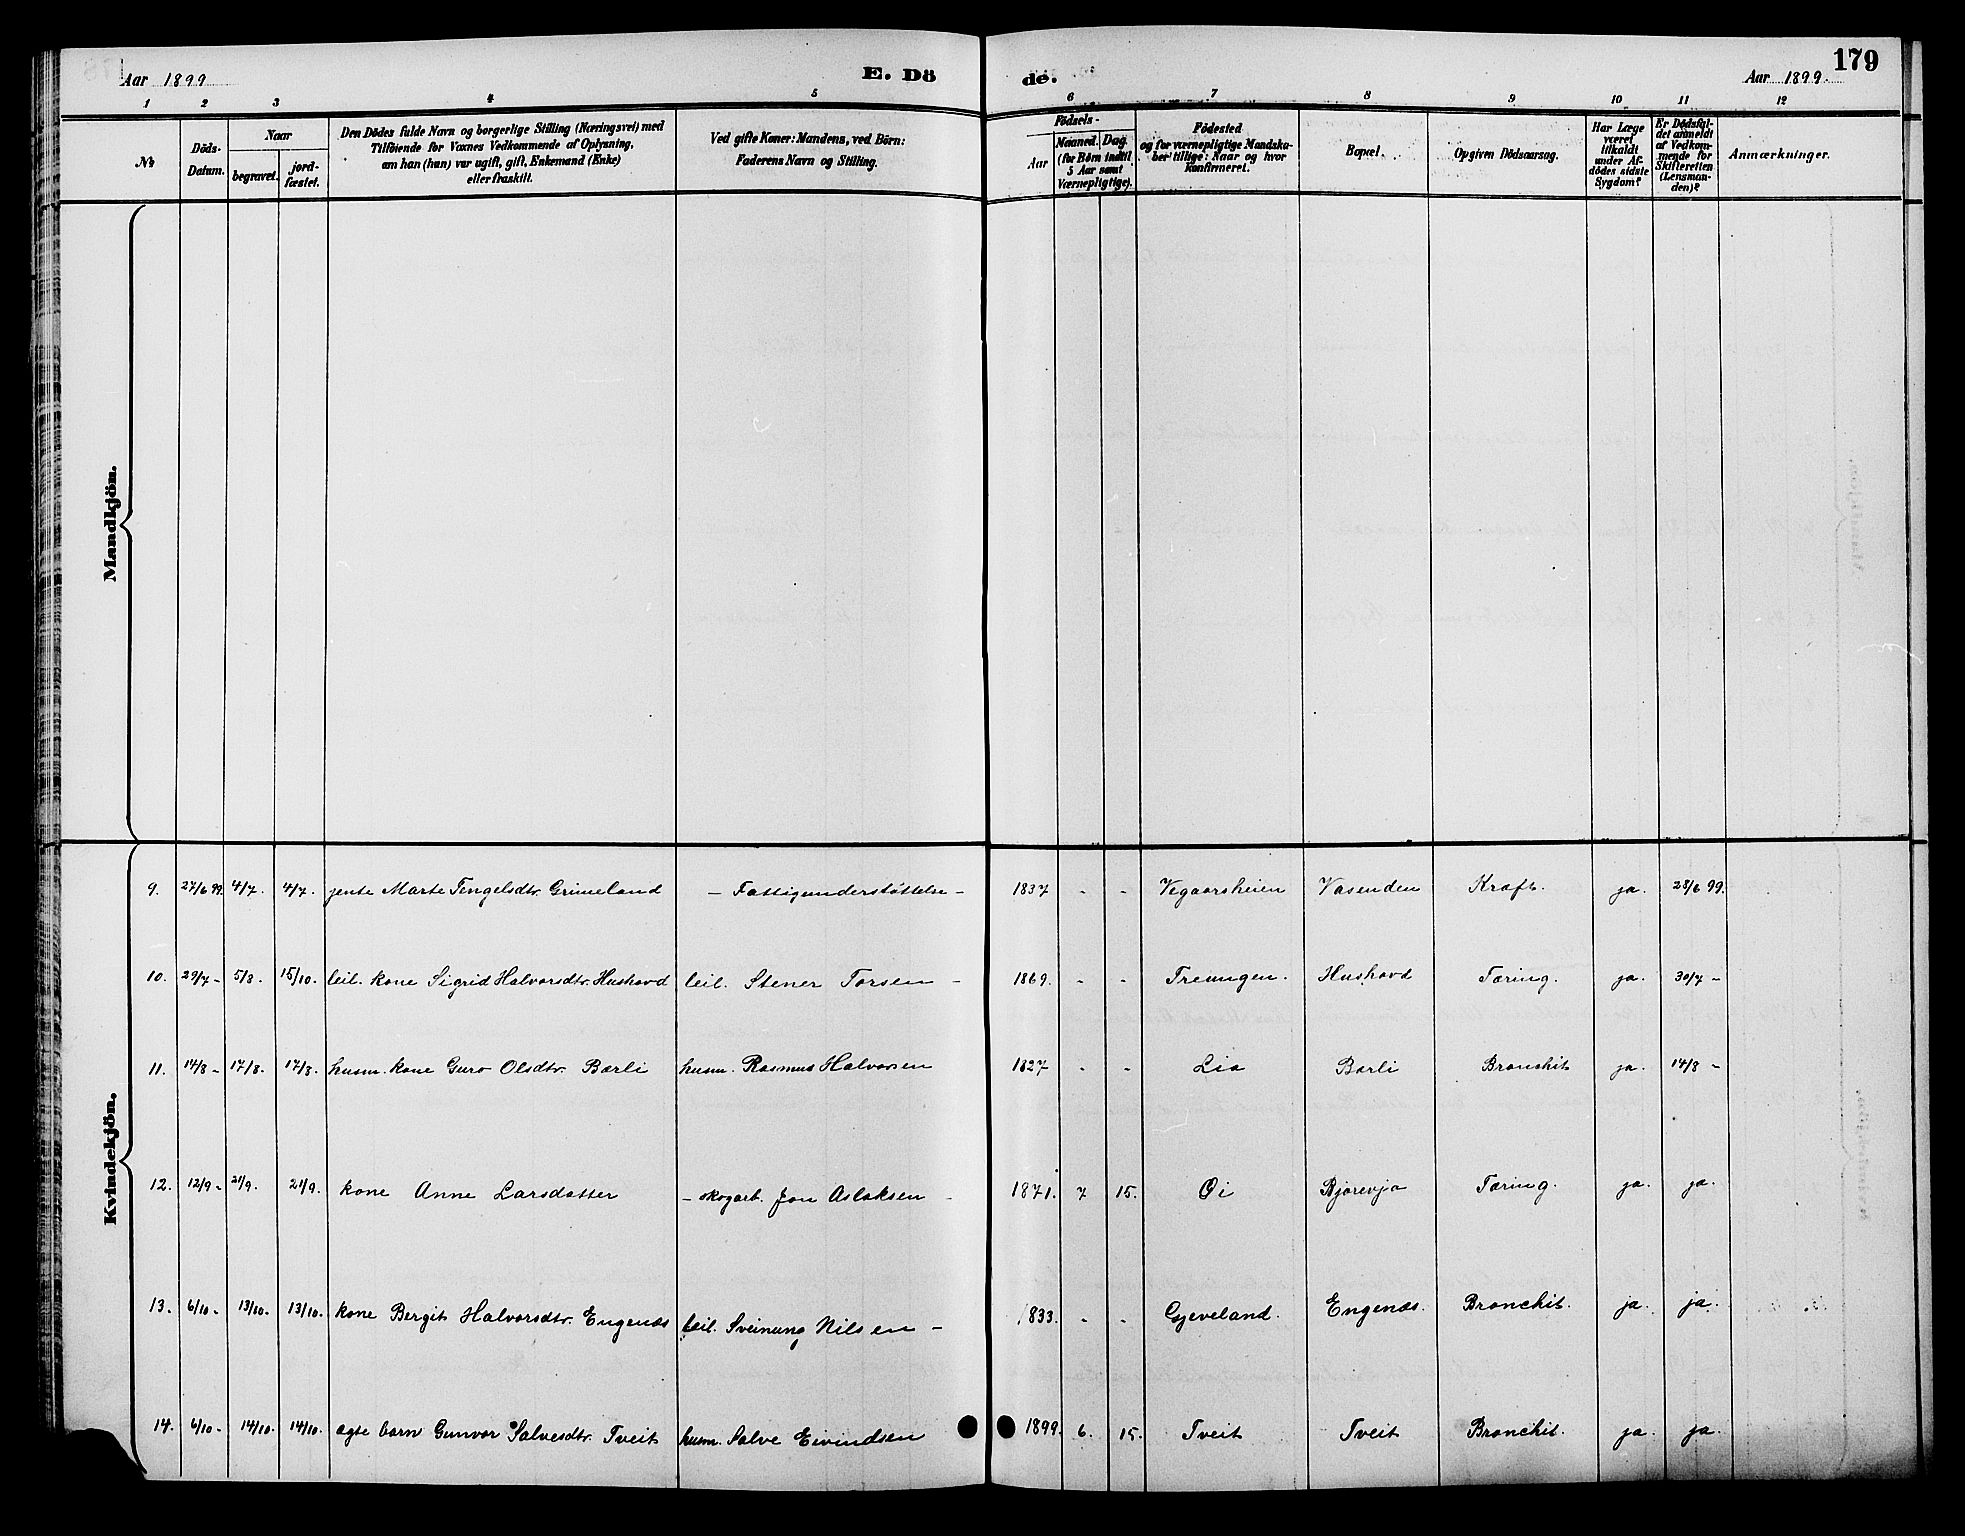 Aar 1899
E. Dö
de.
Aar 1899.
179
1 2 3 4 5 6 7 8 9 10 11 12
№
Döds-
Datum.
Naar
begravet.
jord-
fæstet.
Den Dödes fulde Navn og borgerlige Stilling (Næringsvei) med
Tilföiende for Voxnes Vedkommende af Oplysning,
om han (hun) var ugift, gift, Enkemand (Enke)
eller fraskilt.
Ved gifte Koner: Mandens, ved Börn:
Faderens Navn og Stilling.
Födsels-
Aar
Maaned. Dag
(for Börn indtil
5 Aar samt
Værnepligtige).
Födested
og for værnepligtige Mandska-
ber tillige: Naar og hvor
Konfirmeret.
Bopæl.
Opgiven Dödsaarsag.
Har Læge
været
tilkaldt
under Af-
dödes sidste
Sygdom?
Er Dödsfal-
det anmeldt
af Vedkom-
mende for
Skifteretten
(Lensman-
den)?
Anmærkninger.
Mandkjön.
Kvindekjön.
9. 27/6 99. 4/7. 4/7. jente Marte Tengelsdtr. Grimeland - Fattigunderstøttelse - 1837 - - Vegaarsheien Vasenden Kræft. ja. 28/6 99.
10. 29/7 - 5/8. 15/10. leil. kone Sigrid Halvorsdtr. Hushovd leil. Stener Torsen - 1869. - - Treungen. Hushovd Tæring. ja. 30/7 -
11. 14/8 - 17/8. 17/8. husm. kone Guro Olsdtr. Barli husm. Rasmus Halvorsen 1827 - - Lia Barli Bronchit ja. 14/8 -
12. 12/9 - 21/9. 21/9. kone Anne Larsdatter - skogarb. Jon Aslaksen - 1871. 7 15. Øi Bjorevja Tæring. ja. ja.
13. 6/10 - 13/10. 13/10. kone Bergit Halvorsdtr. Engenæs leil. Sveinung Nilsen - 1833. - - Gjeveland. Engenæs. Bronchit. ja. ja.
14. 6/10 - 14/10. 14/10. ægte barn Gunvor Salvesdtr. Tveit husm. Salve Eivindsen 1899. 6. 15. Tveit Tveit Bronchit. ja. ja.